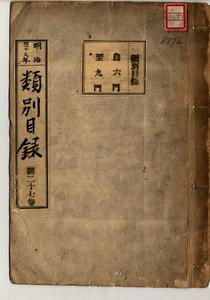 明治
三十八年
類別目録
第二十七巻
類別目録
自六門
至九門